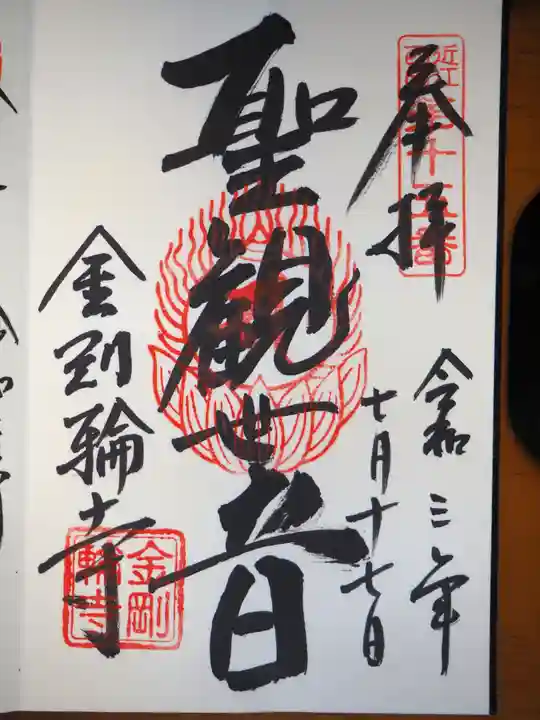 奉拝
令和三年
七月十七日
聖観世音
金剛輪寺
金剛
輪寺